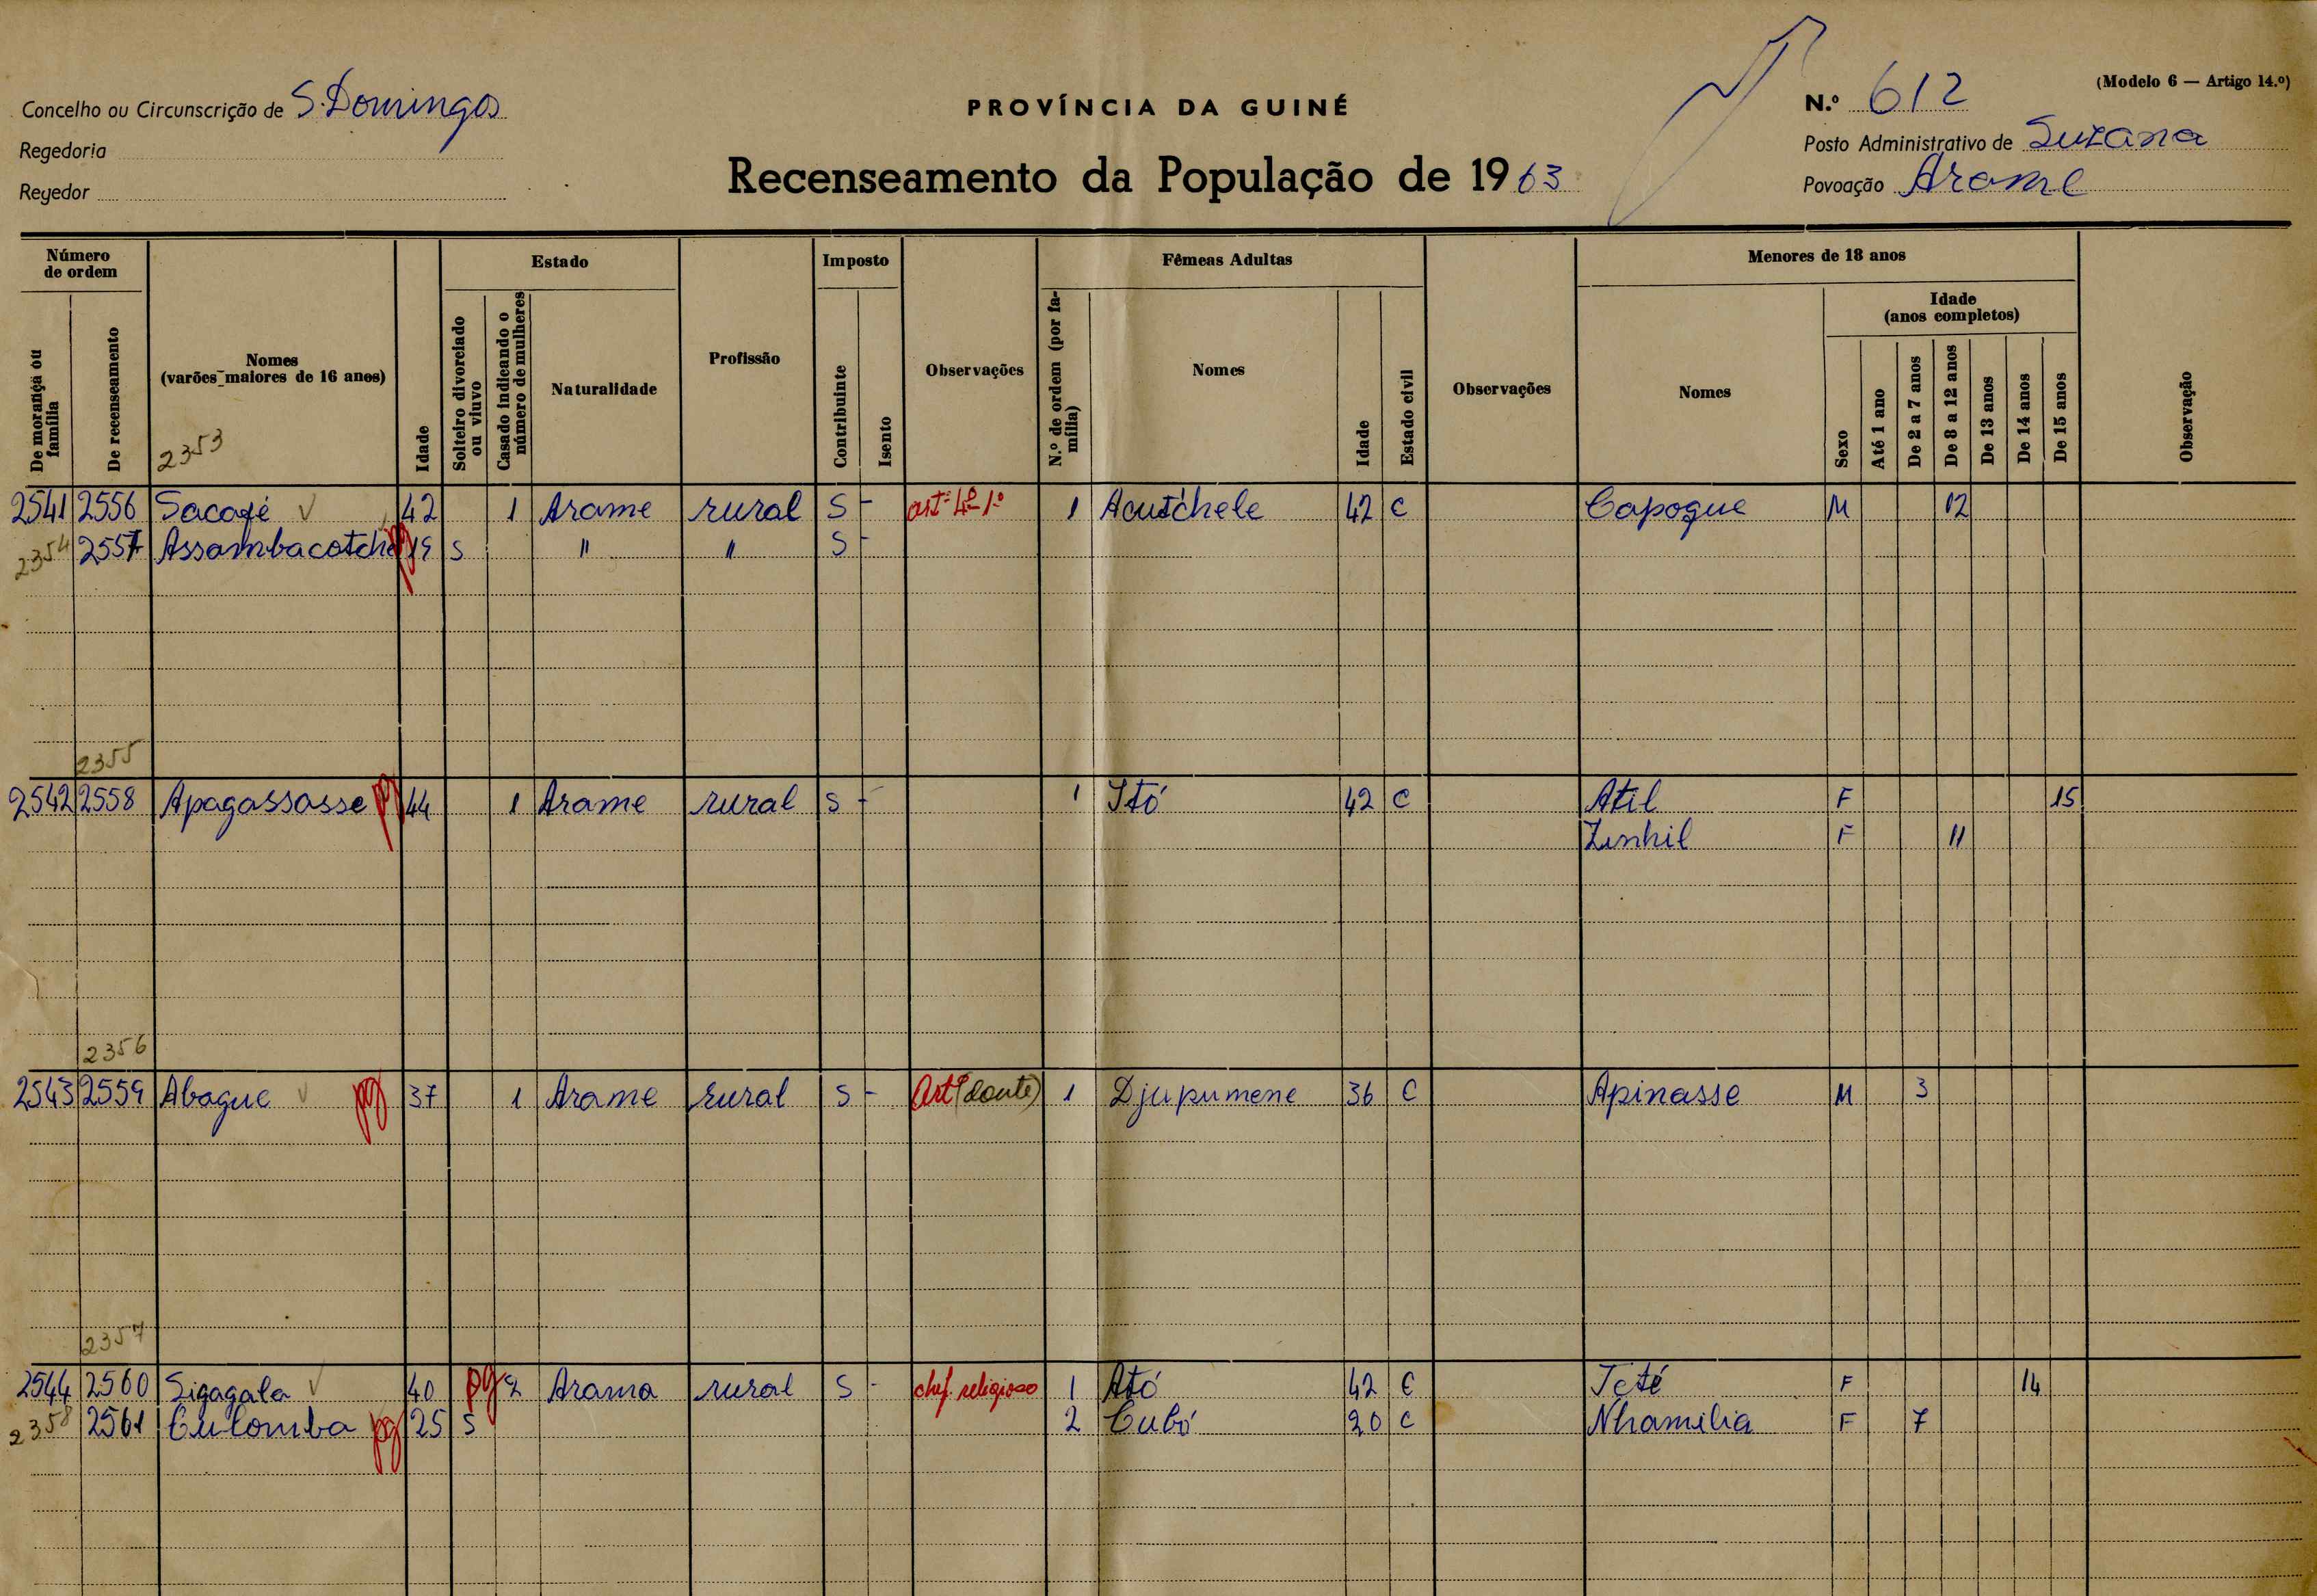 (Modelo 6 — Artigo 14.º)
Concelho ou Circunscrição de S. Domingos
PROVÍNCIA DA GUINÉ
N.º 612
Regedoria
Posto Administrativo de Suzana
Regedor
Recenseamento da População de 1963
Povoação Arame
Número de ordem
Estado
Imposto
Fêmeas Adultas
Menores de 18 anos
Idade (anos completos)
De morança ou família
De recenseamento
Nomes (varões maiores de 16 anos)
Idade
Solteiro divorciado ou viuvo
Casado indicando o número de mulheres
Naturalidade
Profissão
Contribuinte
Isento
Observações
N.º de ordem (por família)
Nomes
Idade
Estado civil
Observações
Nomes
Sexo
Até 1 ano
De 2 a 7 anos
De 8 a 12 anos
De 13 anos
De 14 anos
De 15 anos
Observação
2353
2541 2556 Sacagé 42 1 Arame rural S - artº 4º 1º 1 Acutchele 42 C Capogue M 12
2354 2557 Assambacotche pg 19 S " " S -
2355
2542 2558 Apagassasse pg 44 1 Arame rural S - 1 Itó 42 C Atil F 15
Zinhil F 11
2356
2543 2559 Abague pg 37 1 Arame rural S - Artº (doute) 1 Djupumene 36 C Apinasse M 3
2357
2544 2560 Sigagala 40 pg 2 Arama rural S - chef. religioso 1 Ató 42 C Teté F 14
2358 2561 Culomba pg 25 S 2 Cubó 20 C Nhamilia F 7